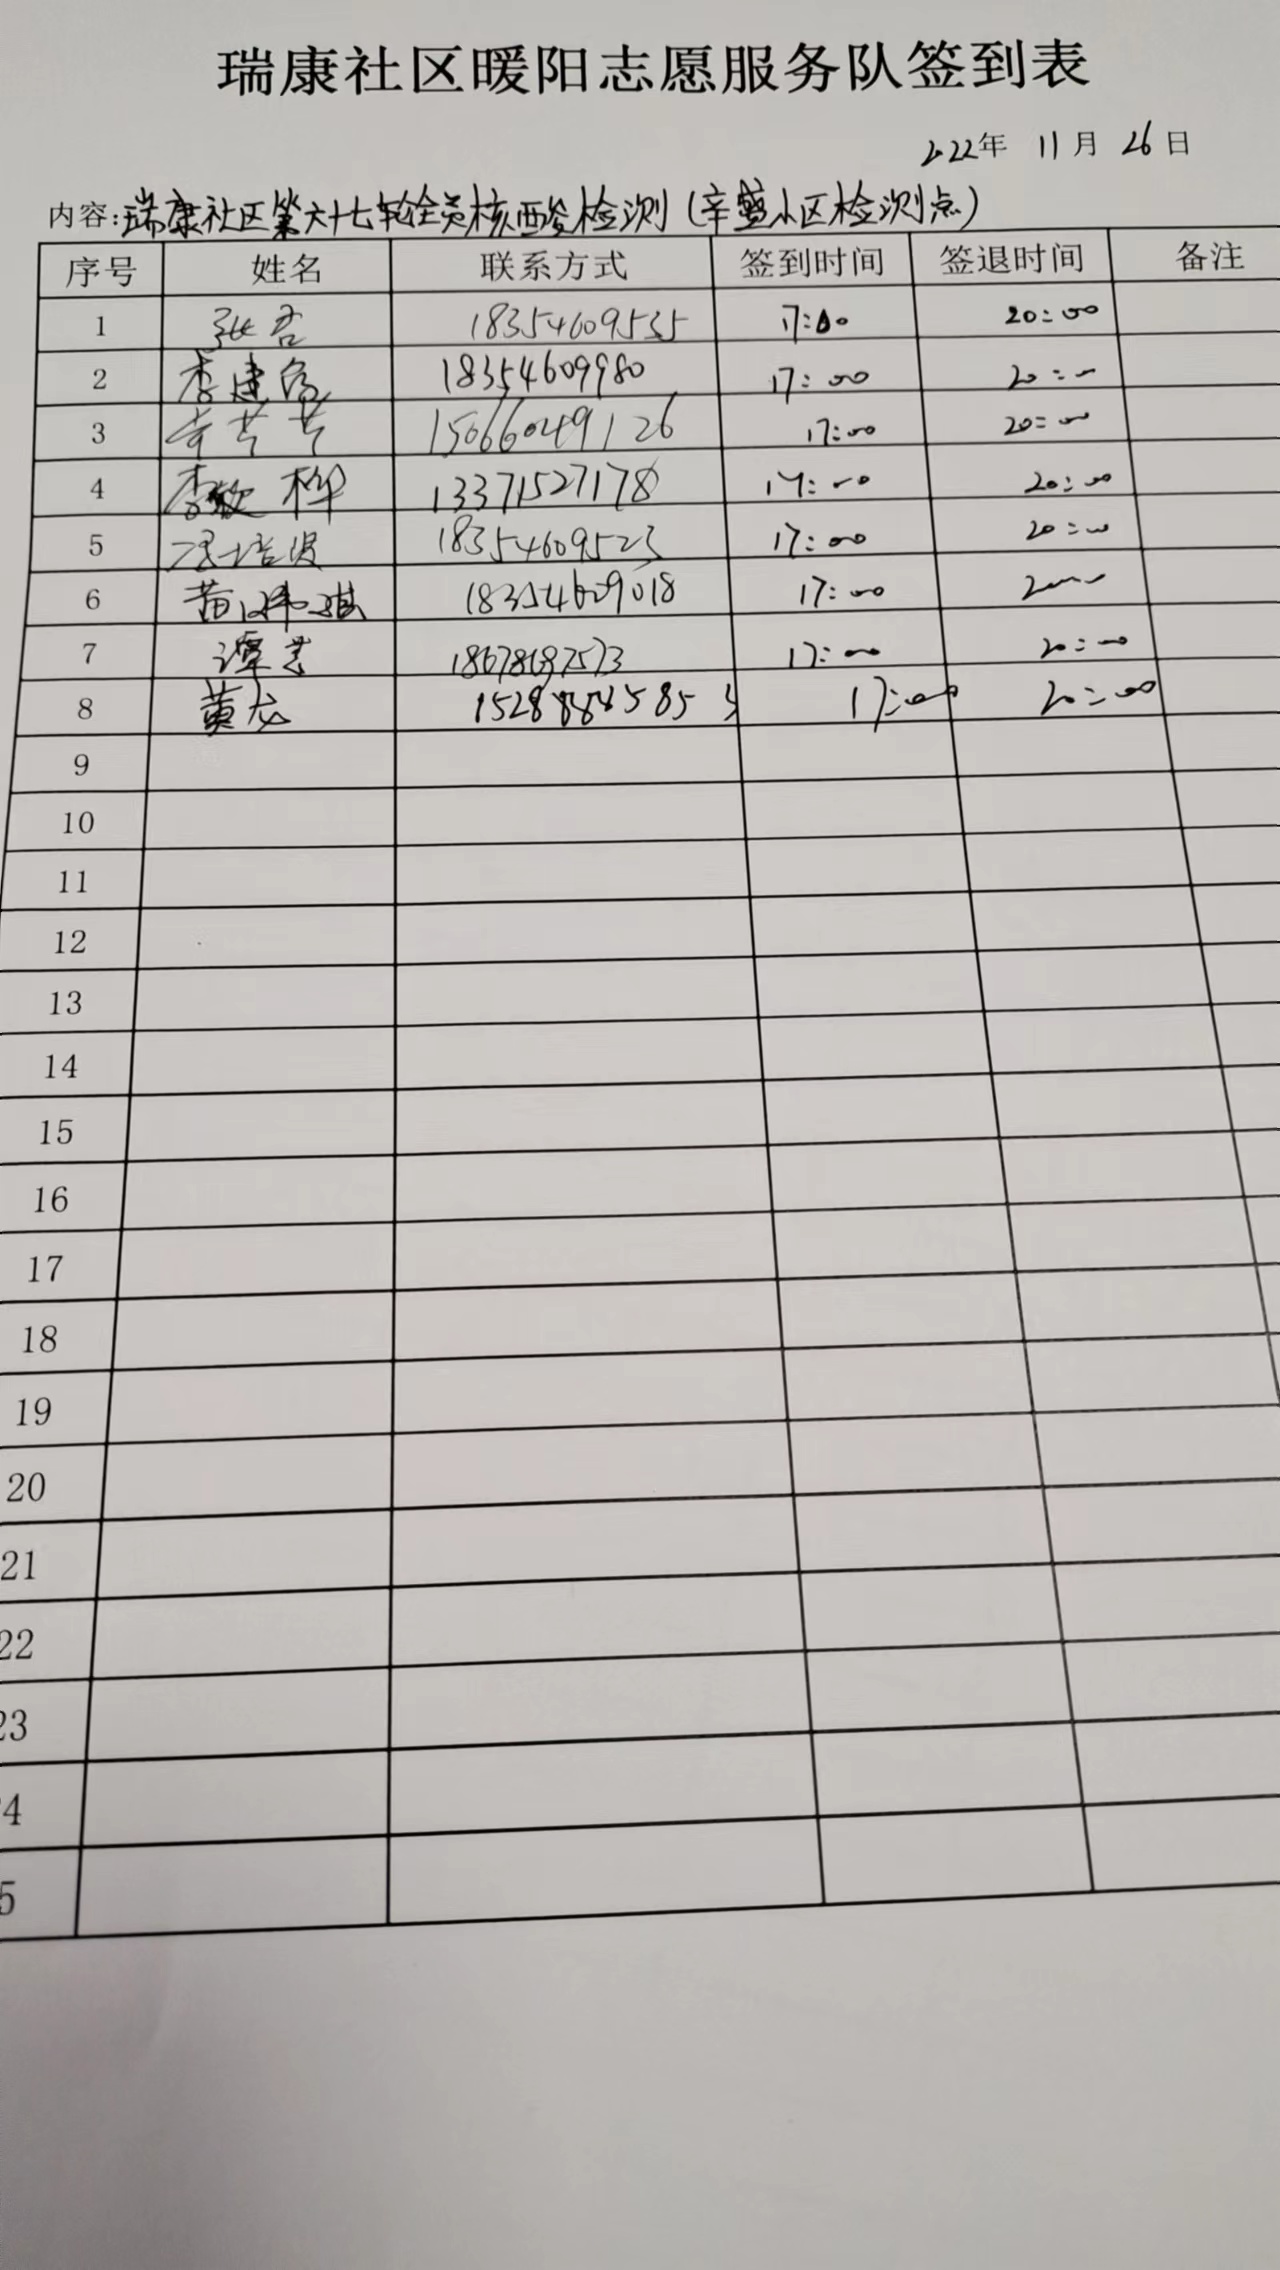 瑞康社区暖阳志愿服务队签到表
2022年 11月 26日
内容:瑞康社区第六十七轮全员核酸检测(辛盛小区检测点)
序号 姓名 联系方式 签到时间 签退时间 备注
1 张君 18354609535 17:00 20:00
2 李建 18354609980 17:00 20:00
3 15066049126 17:00 20:00
4 李敏桦 13371527178 17:00 20:00
5 冯培俊 18354609523 17:00 20:00
6 苗 18354609018 17:00 20:00
7 谭芸 17:00 20:00
8 黄龙 17:00 20:00
9
10
11
12
13
14
15
16
17
18
19
20
21
22
23
4
5